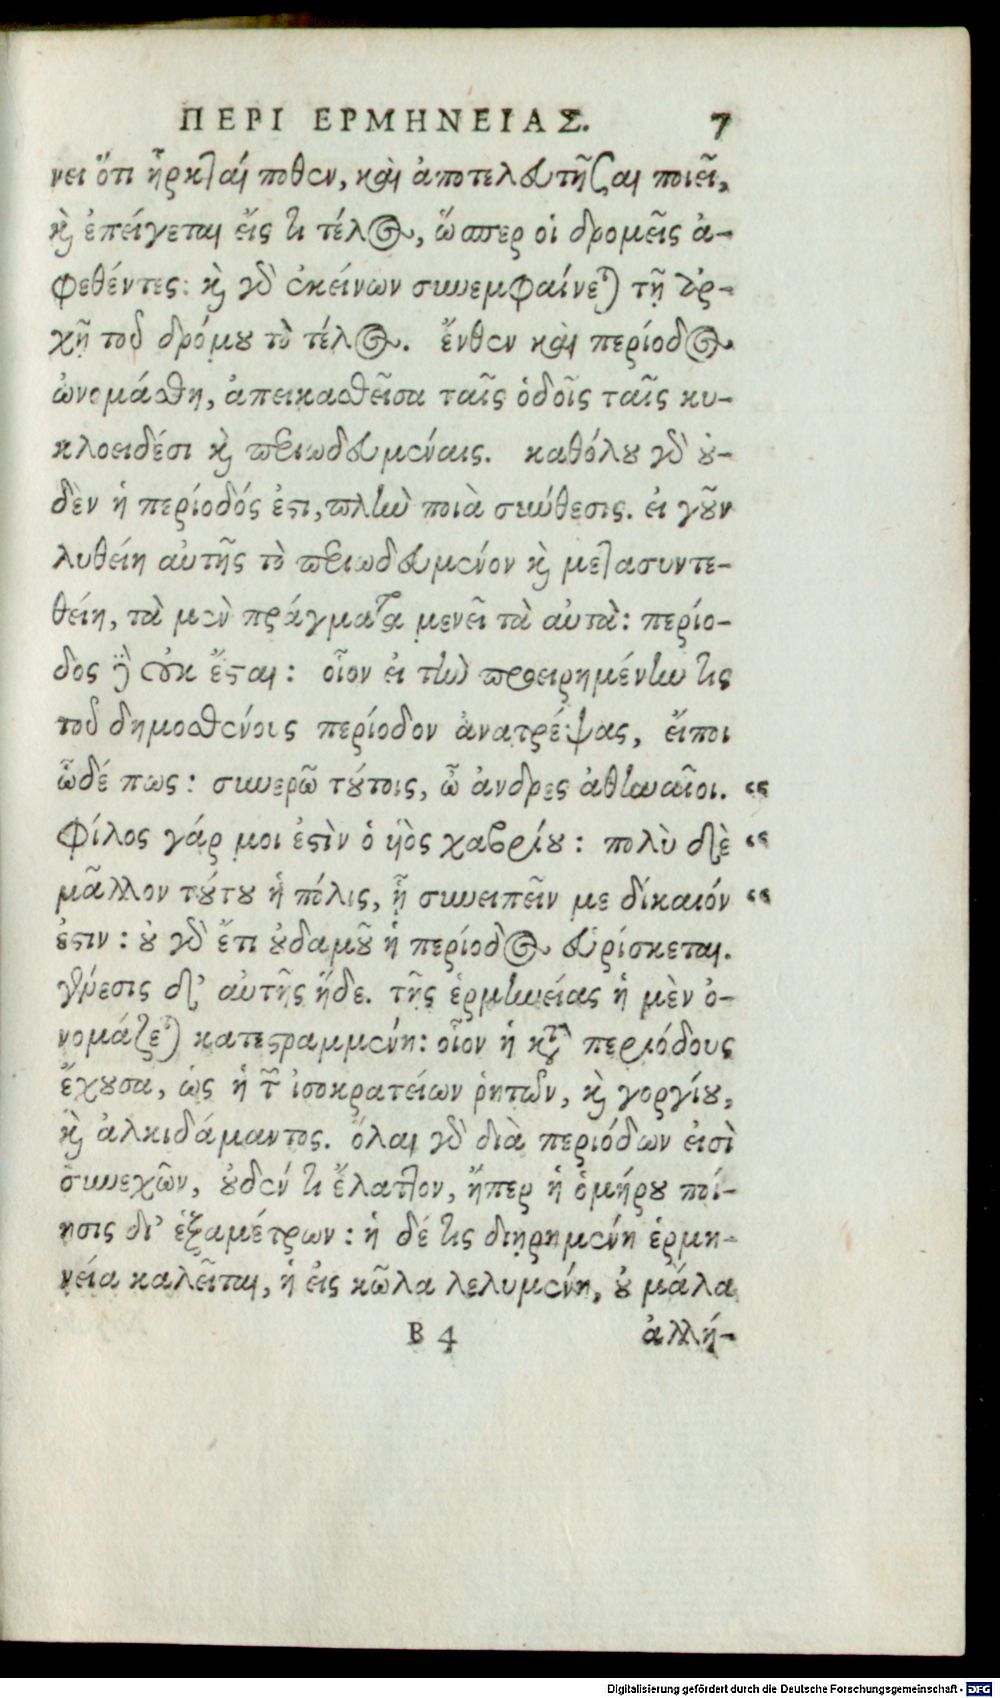 ΠΕΡΙ ΕΡΜΗΝΕΙΑΣ. 7
νει ὅτι ἦρκται ποθεν, καὶ ἀποτελευτῆσαι ποιεῖ,
καὶ ἐπείγεται εἴς τι τέλος, ὥσπερ οἱ δρομεῖς ἀ-
φεθέντες: καὶ γὰρ ἐκείνων συνεμφαίνεται τῇ ἀρ-
χῇ τοῦ δρόμου τὸ τέλος. ἔνθεν καὶ περίοδος
ὠνομάσθη, ἀπεικασθεῖσα ταῖς ὁδοῖς ταῖς κυ-
κλοειδέσι καὶ περιωδευμέναις. καθόλου γὰρ οὐ-
δὲν ἡ περίοδός ἐστι, πλὴν ποιὰ σύνθεσις. εἰ γοῦν
λυθείη αὐτῆς τὸ περιωδευμένον καὶ μετασυντε-
θείη, τὰ μὲν πράγματα μενεῖ τὰ αὐτὰ: περίο-
δος δὲ οὐκ ἔσται: οἷον εἰ τὴν προειρημένην τις
τοῦ δημοσθένοις περίοδον ἀνατρέψας, εἴποι
ὧδέ πως: συνερῶ τούτοις, ὦ ἄνδρες ἀθηναῖοι. “
Φίλος γάρ μοι ἐστὶν ὁ υἱὸς χαβρίου: πολὺ δὲ “
μᾶλλον τούτου ἡ πόλις, ᾗ συνειπεῖν με δίκαιόν “
ἐστιν: οὐ γὰρ ἔτι οὐδαμοῦ ἡ περίοδος εὑρίσκεται.
γένεσις δ' αὐτῆς ἥδε. τῆς ἑρμηνείας ἡ μὲν ὀ-
νομάζεται κατεστραμμένη: οἷον ἡ κατὰ περιόδους
ἔχουσα, ὡς ἡ τῶν ἰσοκρατείων ῥητῶν, καὶ γοργίου,
καὶ ἀλκιδάμαντος. ὅλαι γὰρ διὰ περιόδων εἰσὶ
συνεχῶν, οὐδέν τι ἔλαττον, ἤπερ ἡ ὁμήρου ποί-
ησις δι' ἑξαμέτρων: ἡ δέ τις διῃρημένη ἑρμη-
νεία καλεῖται, ἡ εἰς κῶλα λελυμένη, οὐ μάλα
B 4 ἀλλή-
Digitalisierung gefördert durch die Deutsche Forschungsgemeinschaft - DFG